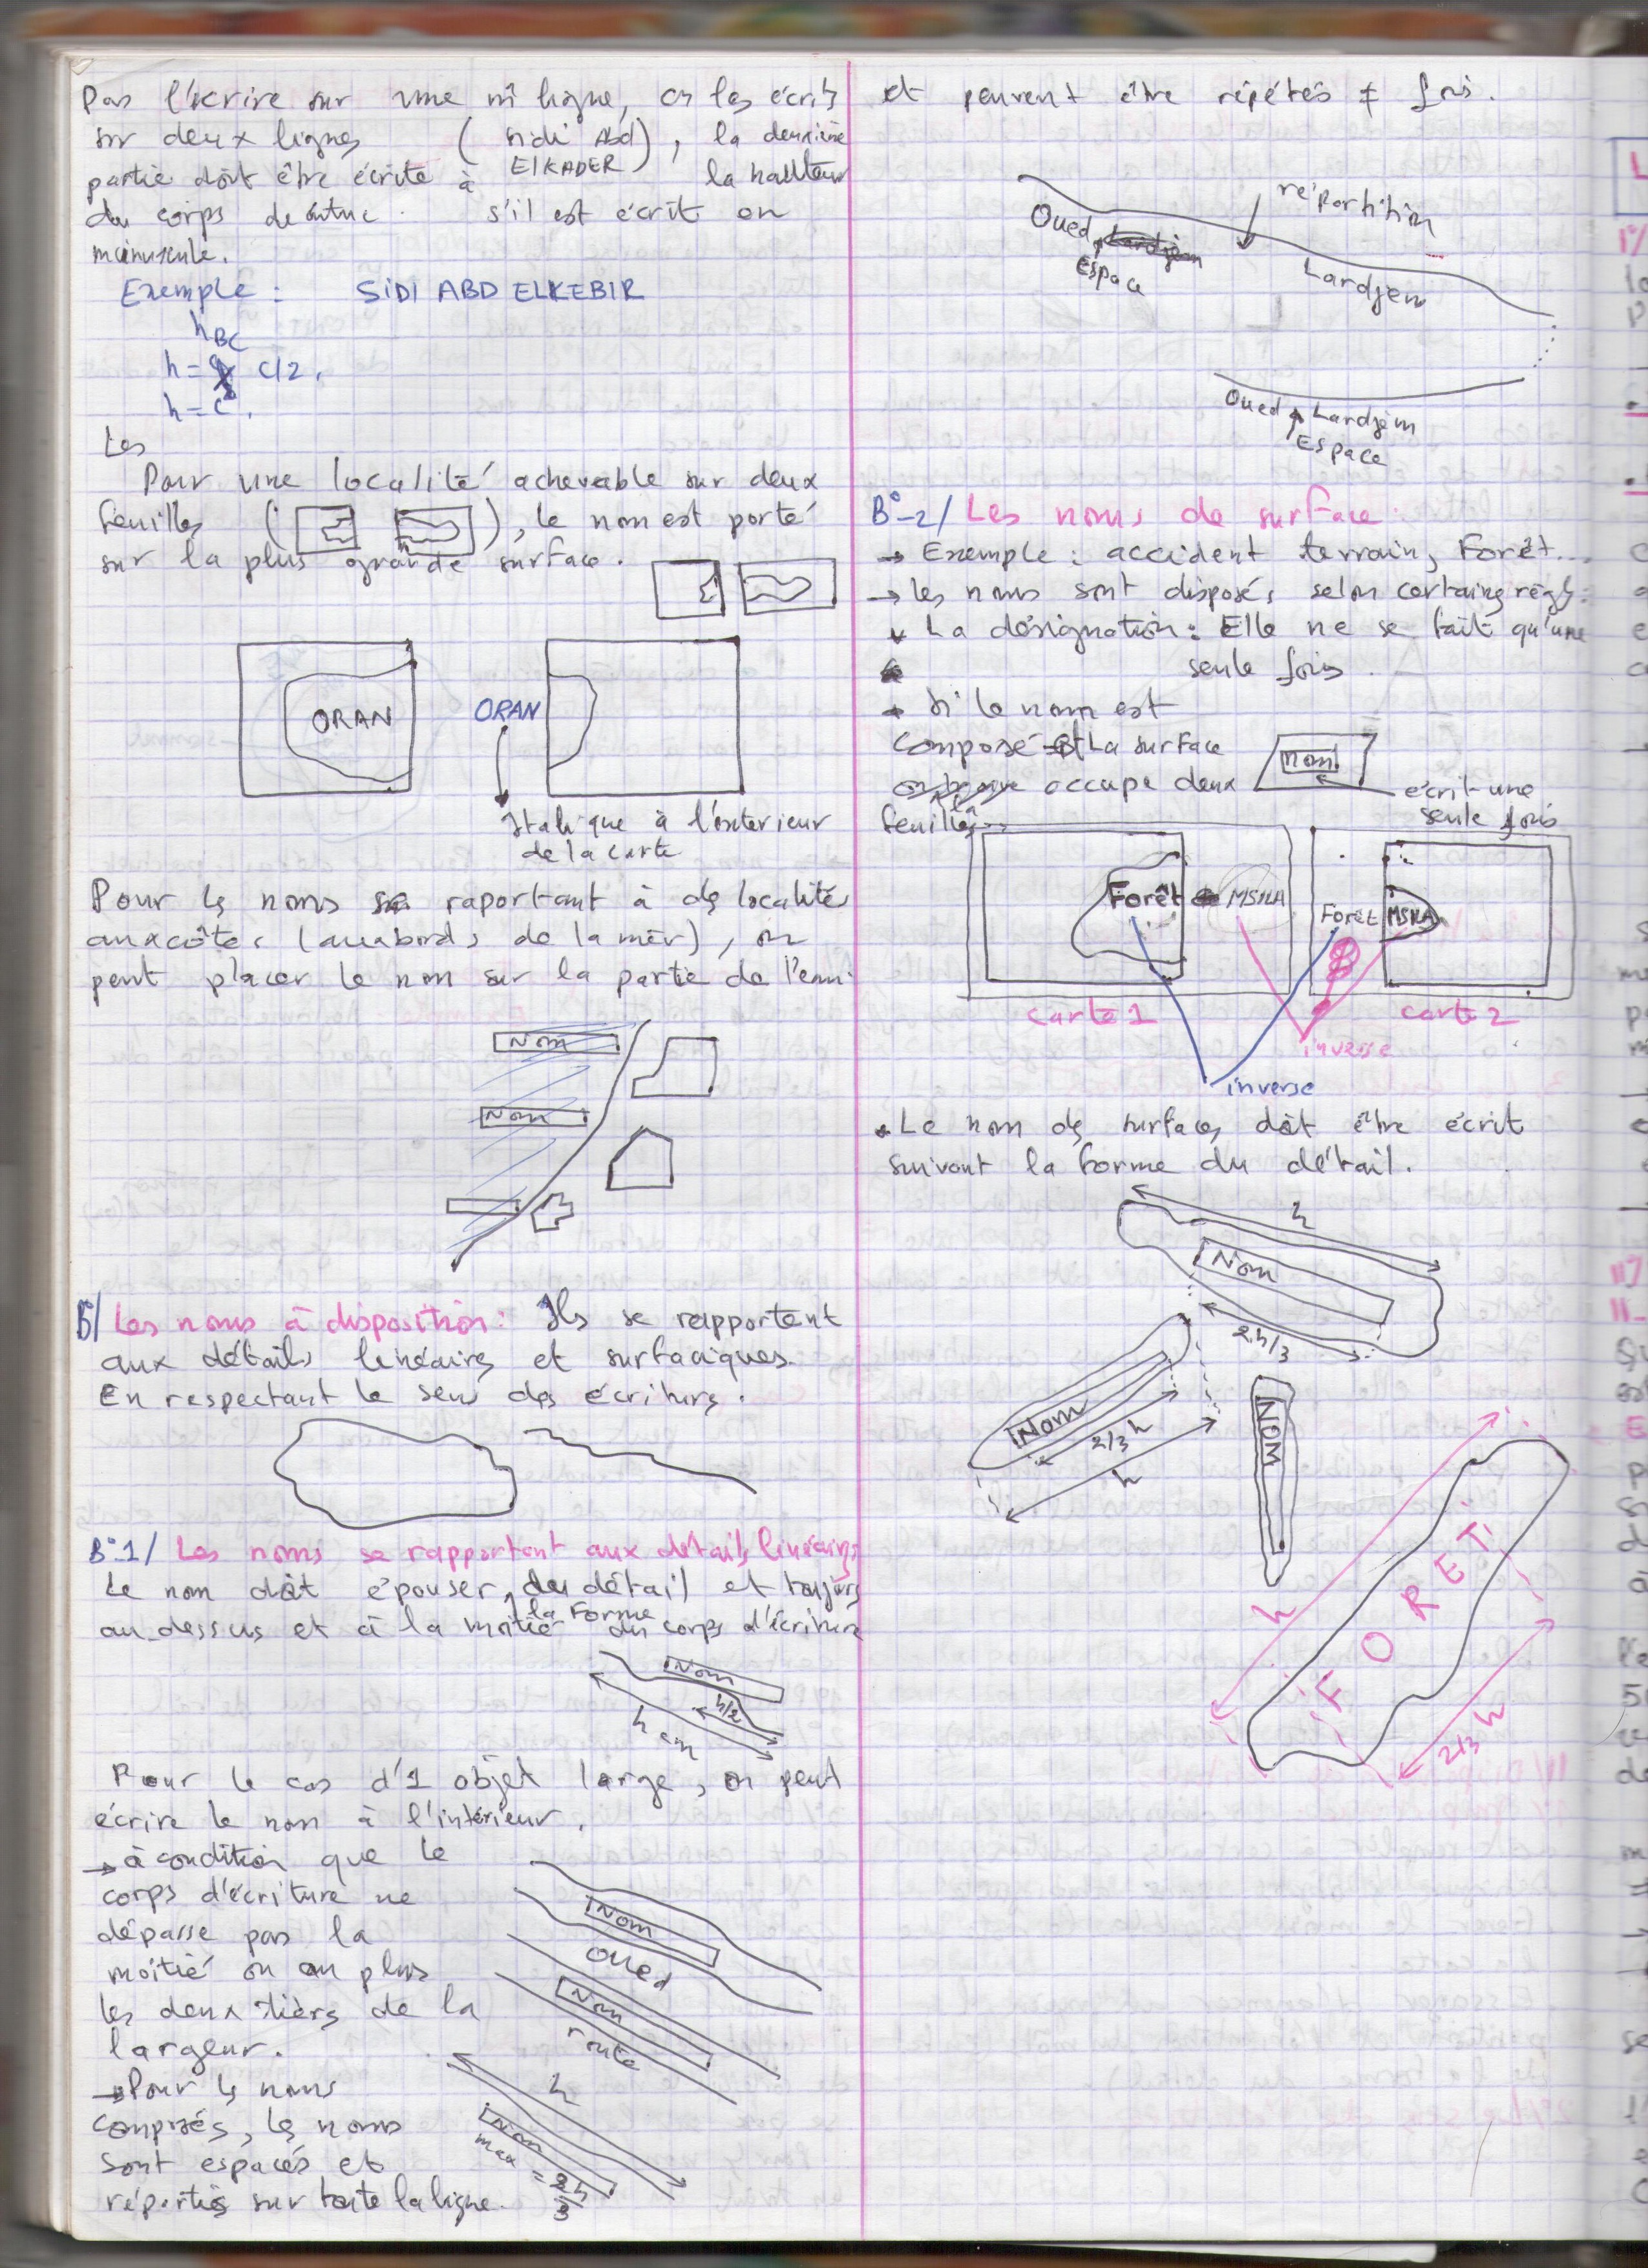 Pas l'écrire sur une m̂ ligne, on les écrit
sur deux lignes ( sidi Abd
ElKADER ), la deuxième
partie doit être écrite à la hauteur
du corps de s'il est écrit en
minuscule.
Exemple : SIDI ABD ELKEBIR
h BC
h = C/2.
h = C.
Les
Pour une localité achevable sur deux
feuilles ( ), le nom est porté
sur la plus grande surface.
ORAN
ORAN
Italique à l'exterieur
de la carte
Pour les noms se raportant à des localités
aux côtes (aux abords de la mer), on
peut placer le nom sur la partie de l'eau.
Nom
Nom
B/ Les noms à disposition : Ils se rapportent
aux détails linéaires et surfaciques.
En respectant le sens des écritures.
B-1/ Les noms se rapportant aux détails linéaires
Le nom doit épouser la Forme du détail et toujours
au-dessus et à la moitié du corps d'écriture
Nom
h/2
h cm
Pour le cas d'1 objet large, on peut
écrire le nom à l'intérieur.
→ à condition que le
corps d'écriture ne
dépasse pas la
moitié ou au plus
les deux tiers de la
largeur.
Nom
oued
Nom
route
→ Pour les noms
composés, les noms
sont espacés et
répartis sur toute la ligne.
h
Nom
max = 2h/3
et peuvent être répétés ≠ fois.
répartition
Oued
Espace
Lardjem
Oued Lardjem
Espace
B-2/ Les noms de surface :
→ Exemple : accident terrain, Forêt...
→ les noms sont disposés selon certaines régls :
La désignation : Elle ne se fait qu'une
seule fois.
Si le nom est
composé et La surface
occupe deux
feuilles...
nom
écrit une
seule fois
Forêt MSILA
Forêt MSILA
carte 1
carte 2
inverse
inverse
Le nom des surfaces doit être écrit
suivant la forme du détail.
h
Nom
2h/3
Nom
2/3 h
h
NOM
FORET
h
2/3 h